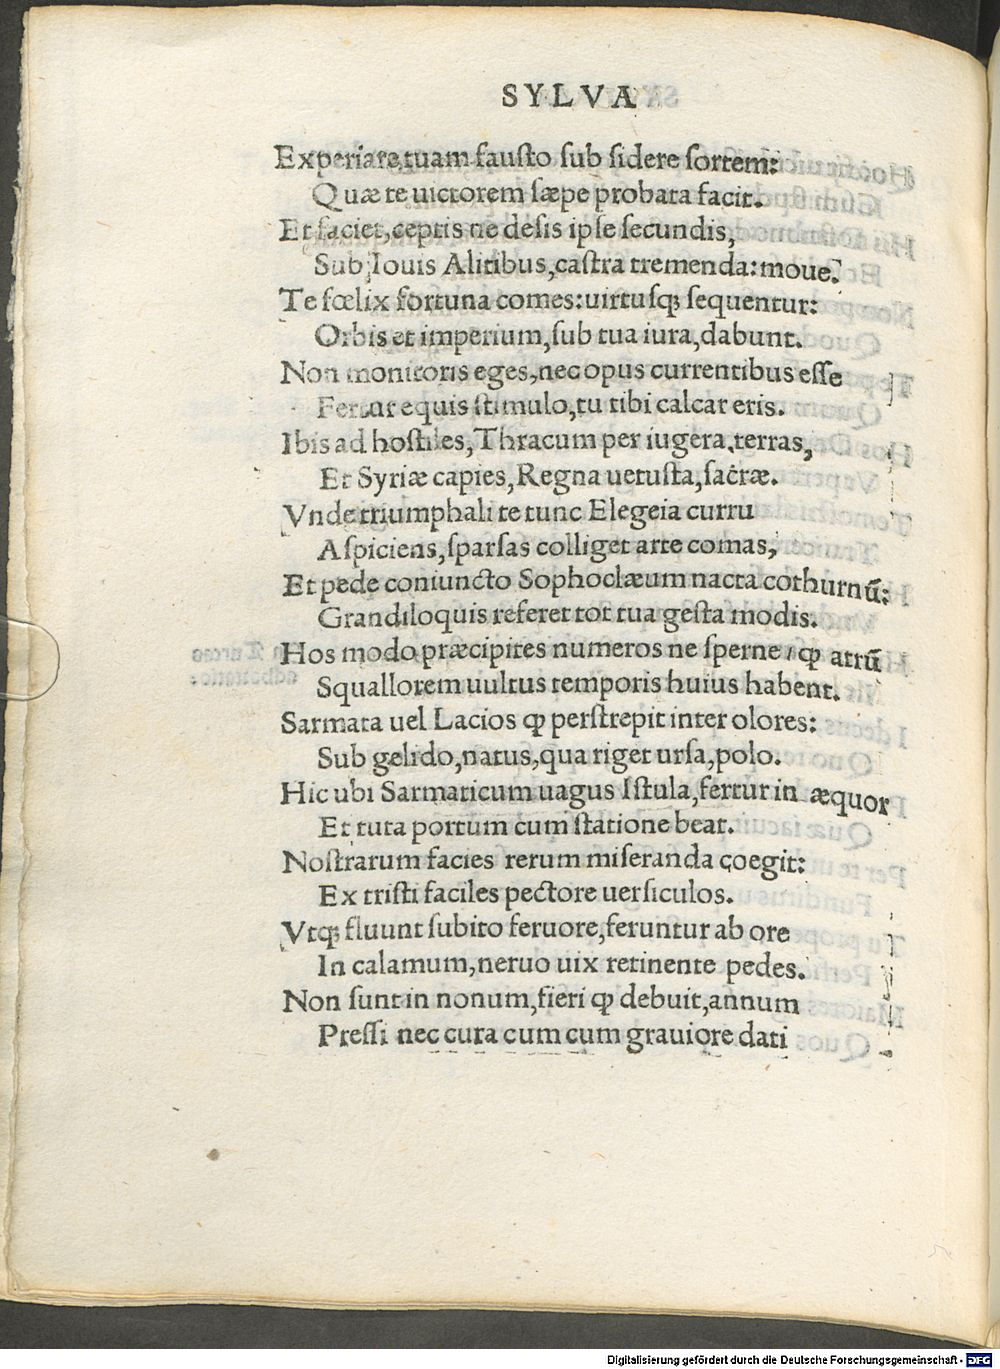 SYLVA
Experiare,tuam fausto sub sidere sortem:
Quæ te uictorem sæpe probata facit.
Et faciet,ceptis ne desis ipse secundis,
Sub Iouis Alitibus,castra tremenda:moue.
Te fœlix fortuna comes:uirtusq; sequentur:
Orbis et imperium,sub tua iura,dabunt.
Non monitoris eges,nec opus currentibus esse
Fertur equis stimulo,tu tibi calcar eris.
Ibis ad hostiles,Thracum per iugera,terras,
Et Syriæ capies,Regna uetusta,sacræ.
Vnde triumphali te tunc Elegeia curru
Aspiciens,sparsas colliget arte comas,
Et pede coniuncto Sophoclæum nacta cothurnū:
Grandiloquis referet tot tua gesta modis.
Hos modo præcipites numeros ne sperne / ꝙ atrū
Squallorem uultus temporis huius habent.
Sarmata uel Lacios ꝙ perstrepit inter olores:
Sub gelido,natus,qua riget ursa,polo.
Hic ubi Sarmaticum uagus Istula,fertur in æquor
Et tuta portum cum statione beat.
Nostrarum facies rerum miseranda coegit:
Ex tristi faciles pectore uersiculos.
Vtq; fluunt subito feruore,feruntur ab ore
In calamum,neruo uix retinente pedes.
Non sunt in nonum,fieri ꝙ debuit,annum
Pressi nec cura cum cum grauiore dati
Digitalisierung gefördert durch die Deutsche Forschungsgemeinschaft - DFG